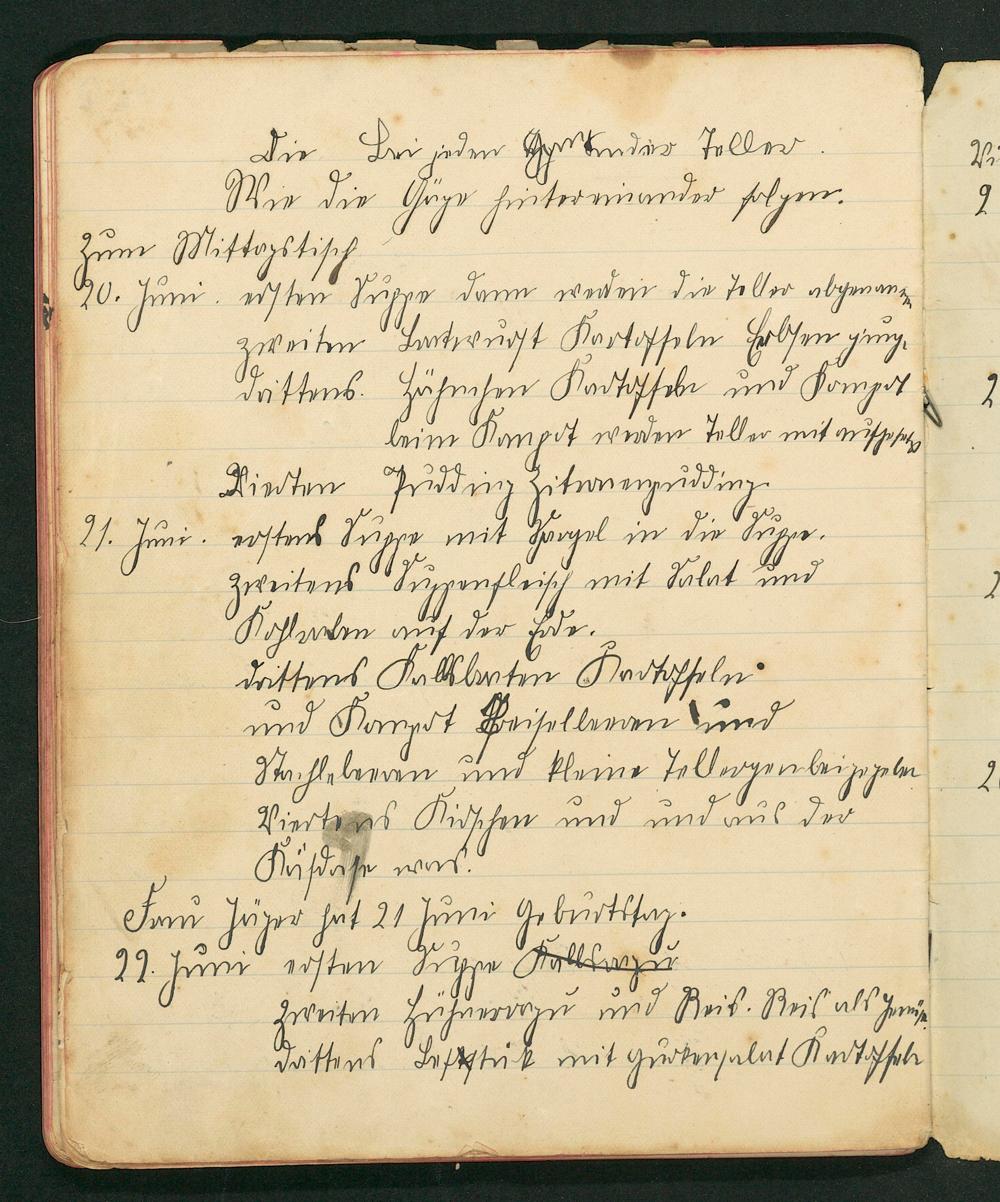 Die Bei jeden ander Teller.
Wie die Gäge hintereinander folgen.
Zum Mittagstisch
20. Juni. ersten Suppe dann werden die Teller abgenamen
zweiten Bratwurst Kartoffeln Erbsen
drittens. Hähnchen Kartoffeln und Kompot
beim Kompot werden Teller mit aufgesetz
Vierten Pudding Zitronenpudding.
21. Juni. erstens Suppe mit Spargel in die Suppe.
zweitens Suppenfleisch mit Salat und
Kohlraben auf der Erde.
drittens Kalbsbraten Kartoffeln
und Kompot Preiselbeeren und
Stachlebeeren und kleine Tellergen beigegeben
Viertens Kirschen und und aus der
Käsdose was.
Frau Jäger hat 21 Juni Geburtstag.
22. Juni ersten Suppe Kalbsragu
Zweiten Hühnerragu und Reis. Reis als Gemüse.
drittens Befstük mit Gurkensalat Kartoffeln
2
2